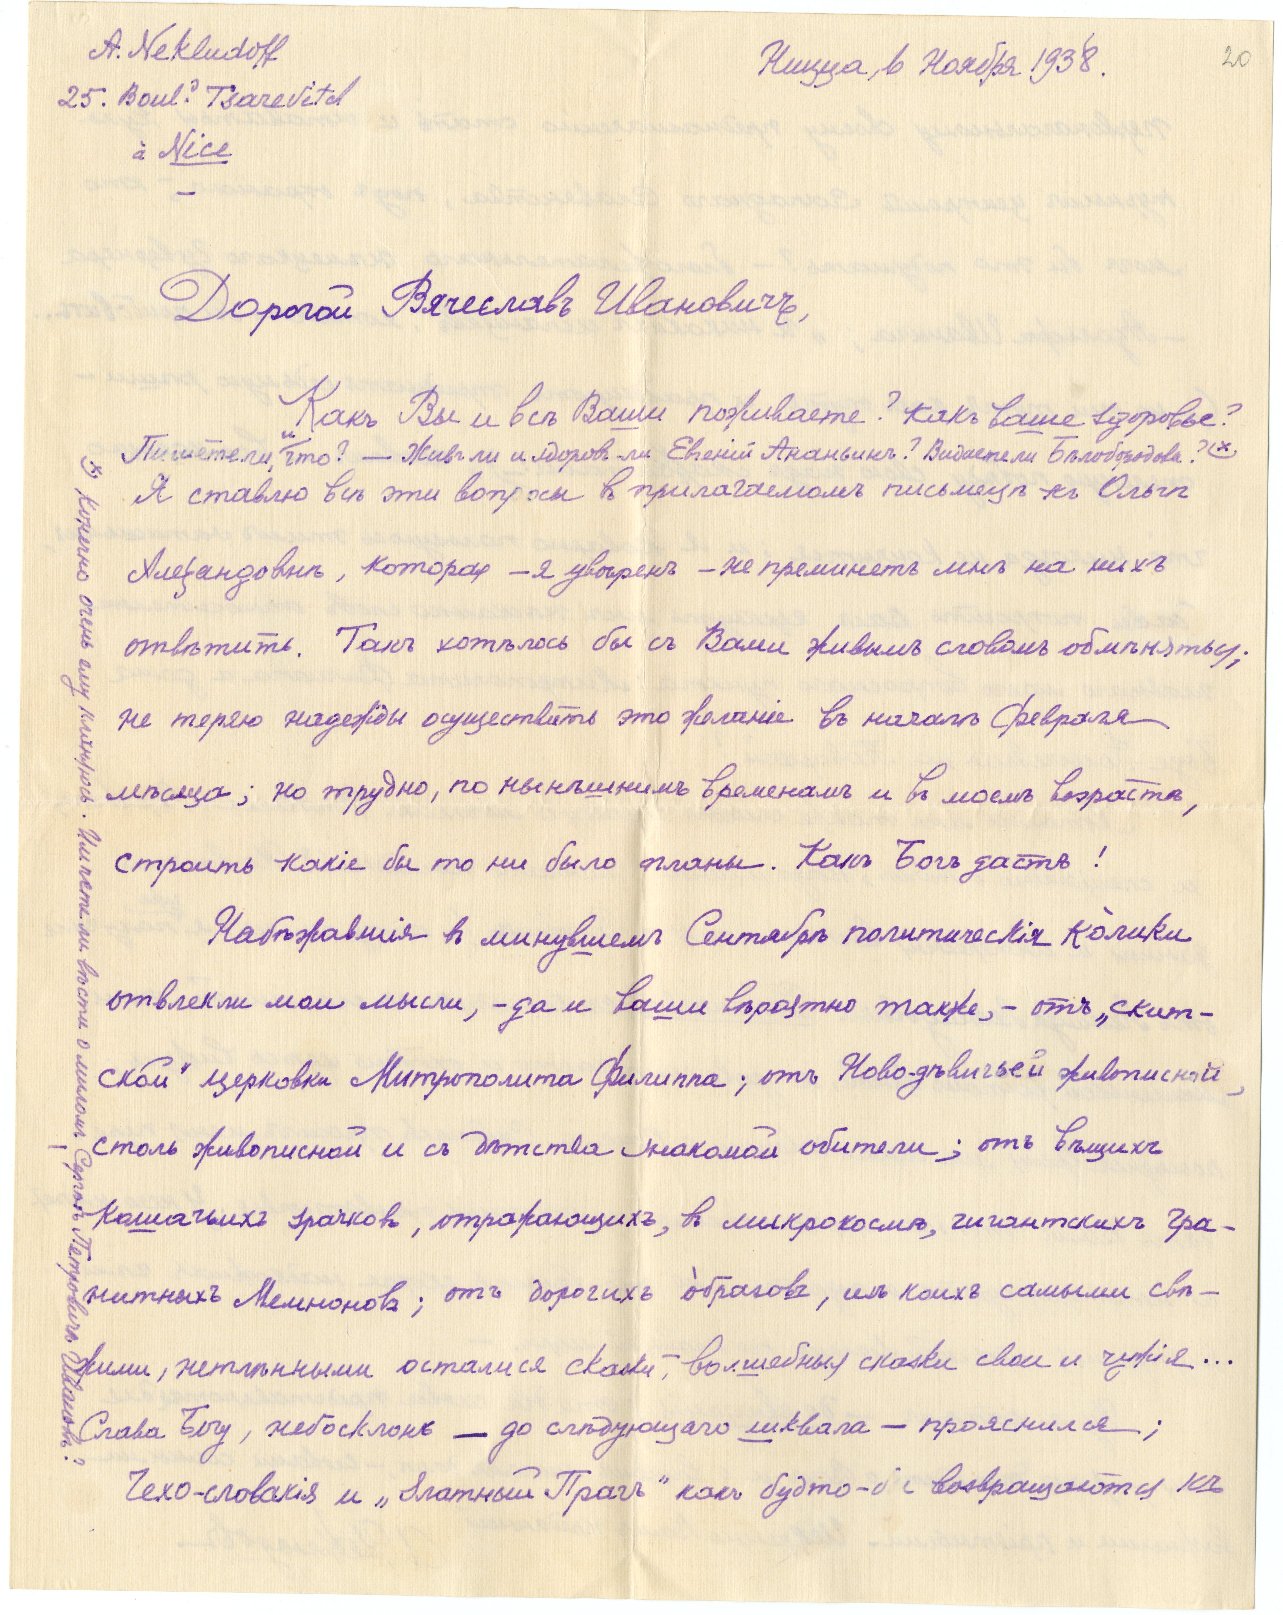 A. Nekludoff
25. Boul.d Tsarevitch
à Nice
Ницца, 6 Ноября 1938.
20
Дорогой Вячеславъ Ивановичъ,
Какъ Вы и всѣ Ваши поживаете? какъ ваше здоровье?
Пишете ли, что? — Живъ ли и здоровъ-ли Евгеній Ананьинъ? Видаете ли Бѣлобородова? (*)
Я ставлю всѣ эти вопросы въ прилагаемомъ письмецѣ къ Ольгѣ
Александровнѣ, которая — я увѣренъ — не преминетъ мнѣ на нихъ
отвѣтить. Такъ хотѣлось бы съ Вами живымъ словомъ обмѣняться;
не теряю надежды осуществить это желаніе въ началѣ Февраля
мѣсяца; но трудно, по нынѣшнимъ временамъ и въ моемъ возрастѣ,
строить какіе бы то ни было планы. Какъ Богъ дастъ!
Набѣжавшія въ минувшемъ Сентябрѣ политическія ко̀лики
отвлекли мои мысли, — да и ваши вѣроятно также, — отъ „скит-
ской" церковки Митрополита Филиппа; отъ Ново-дѣвичьей живописной,
столь живописной и съ дѣтства знакомой обители; отъ вѣщихъ
кошачьихъ зрачковъ, отражающихъ, въ микрокосмѣ, гигантскихъ гра-
нитныхъ Мемноновъ; отъ дорогихъ о̀бразовъ, изъ коихъ самыми свѣ-
жими, нетлѣнными остались сказки, волшебныя сказки свои и чужія...
Слава Богу, небосклонъ — до слѣдующаго шквала — прояснился;
Чехо-словакія и „Златный Прагъ" какъ будто-бы возвращаются къ
*) Конечно очень ему кланяюсь. Имѣете ли вѣсти о миломъ Сергѣѣ Петровичѣ Ивановѣ?